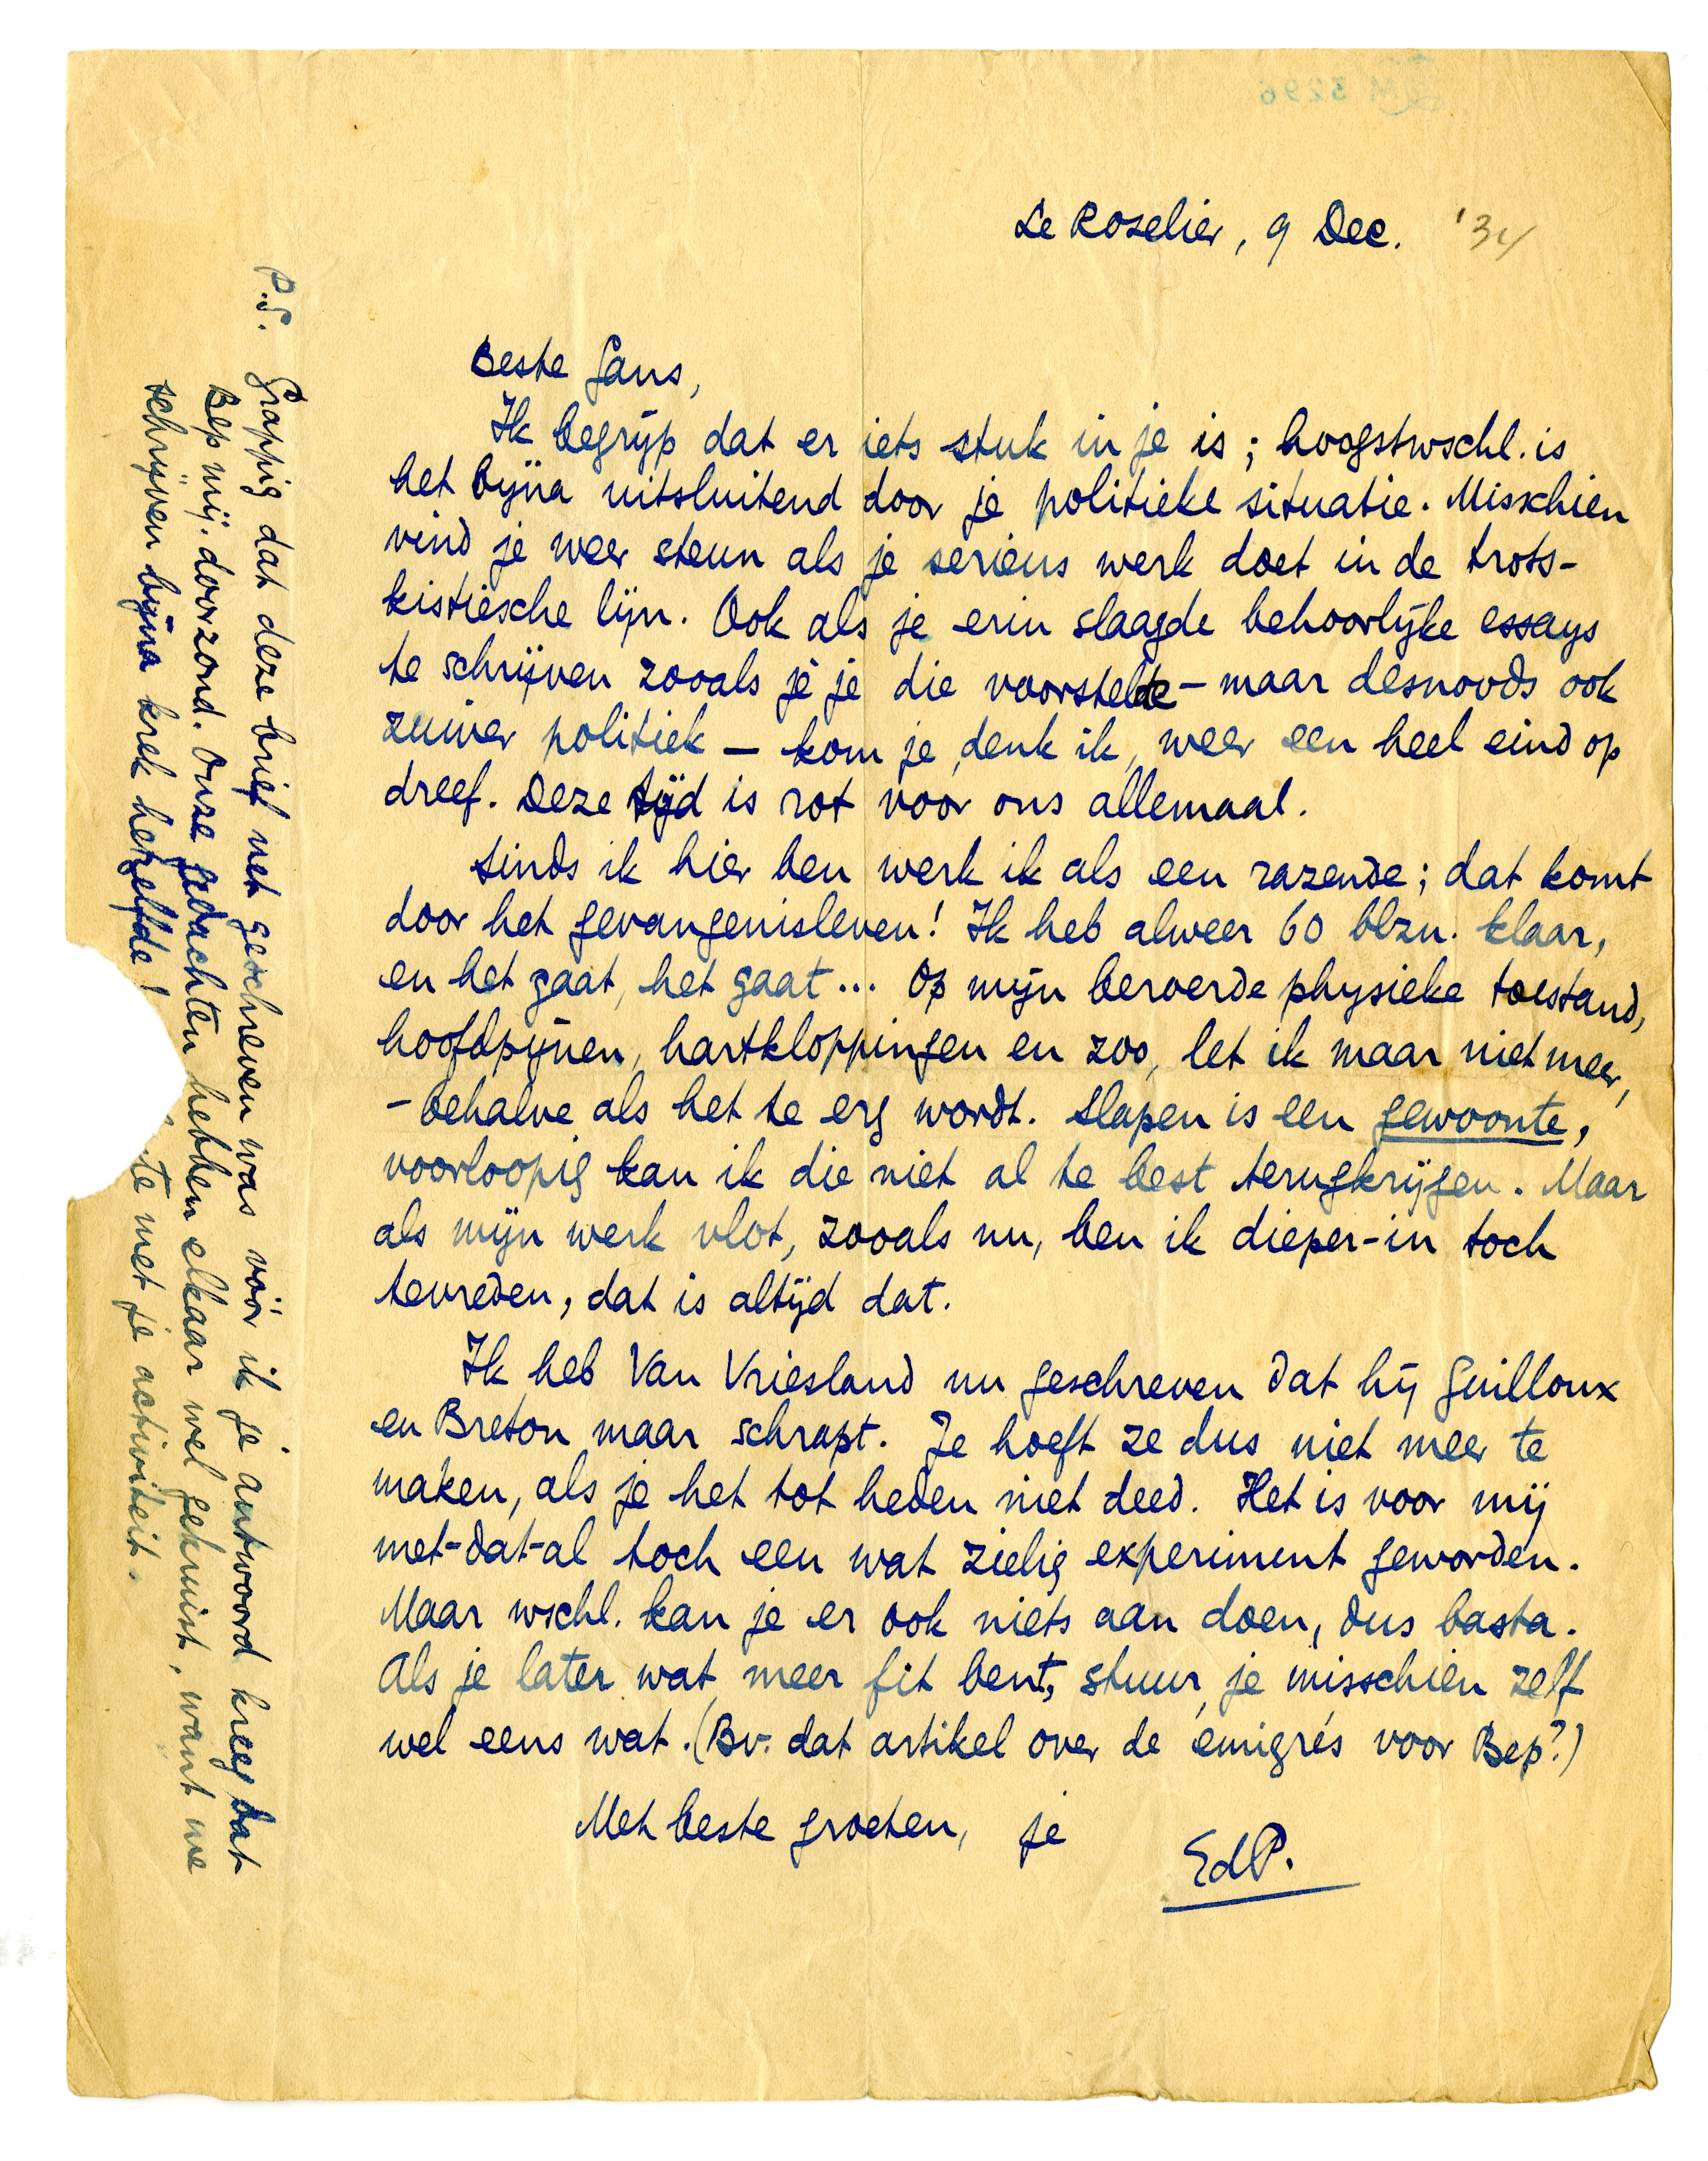 Le Roselier, 9 Dec. '34
Beste Gans,
Ik begrijp dat er iets stuk in je is; hoogstwschl. is
het bijna uitsluitend door je politieke situatie. Misschien
vind je weer steun als je serieus werk doet in de trots-
kistiesche lijn. Ook als je erin slaagde behoorlijke essays
te schrijven zooals je je die voorstelde – maar desnoods ook
zuiver politiek – kom je, denk ik, weer een heel eind op
dreef. Deze tijd is rot voor ons allemaal.
Sinds ik hier ben werk ik als een razende; dat komt
door het gevangenisleven! Ik heb alweer 60 blzn. klaar,
en het gaat, het gaat... Op mijn beroerde physieke toestand,
hoofdpijnen, hartkloppingen en zoo, let ik maar niet meer,
– behalve als het te erg wordt. Slapen is een gewoonte,
voorloopig kan ik die niet al te best terugkrijgen. Maar
als mijn werk vlot, zooals nu, ben ik dieper-in toch
tevreden, dat is altijd dat.
Ik heb Van Vriesland nu geschreven dat hij Guilloux
en Breton maar schrapt. Je hoeft ze dus niet meer te
maken, als je het tot heden niet deed. Het is voor mij
met-dat-al toch een wat zielig experiment geworden.
Maar wschl. kan je er ook niets aan doen, dus basta.
Als je later wat meer fit bent, stuur je misschien zelf
wel eens wat. (Bv. dat artikel over de émigrés voor Bep?)
Met beste groeten, je
EdP.
P.S. Grappig dat deze brief net geschreven was vóór ik je antwoord kreeg dat
Bep mij doorzond. Onze gedachten hebben elkaar wel gekruist, want we
schrijven bijna krek hetzelfde! te met je activiteit.